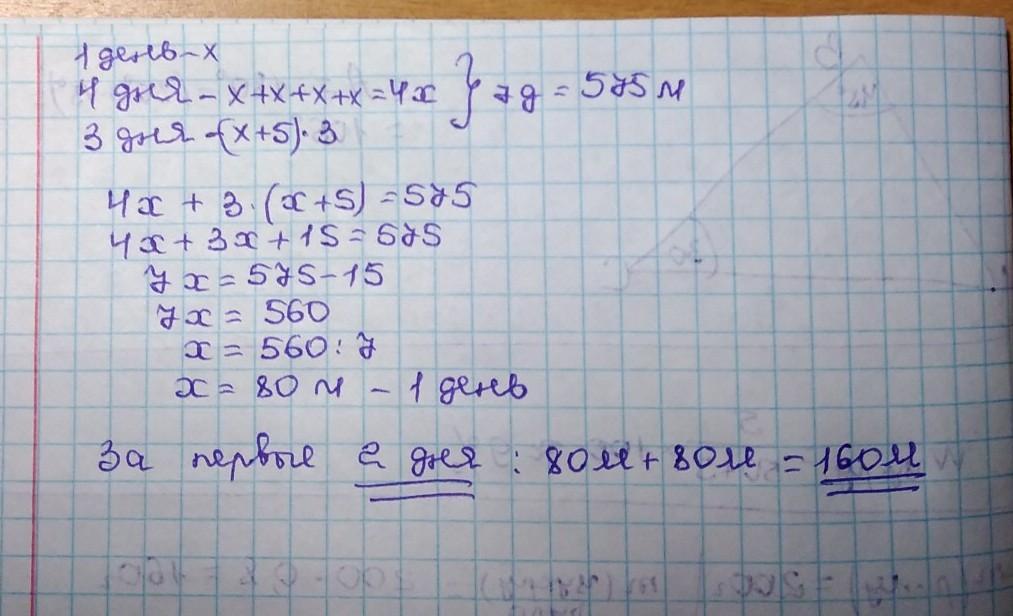 1 день - x
4 дня - x+x+x+x=4x } 7д = 575 м
3 дня -(x+5)·3
4x + 3·(x+5) = 575
4x + 3x + 15 = 575
7x = 575-15
7x = 560
x = 560 : 7
x = 80 м - 1 день
За первые 2 дня : 80м + 80м = 160м